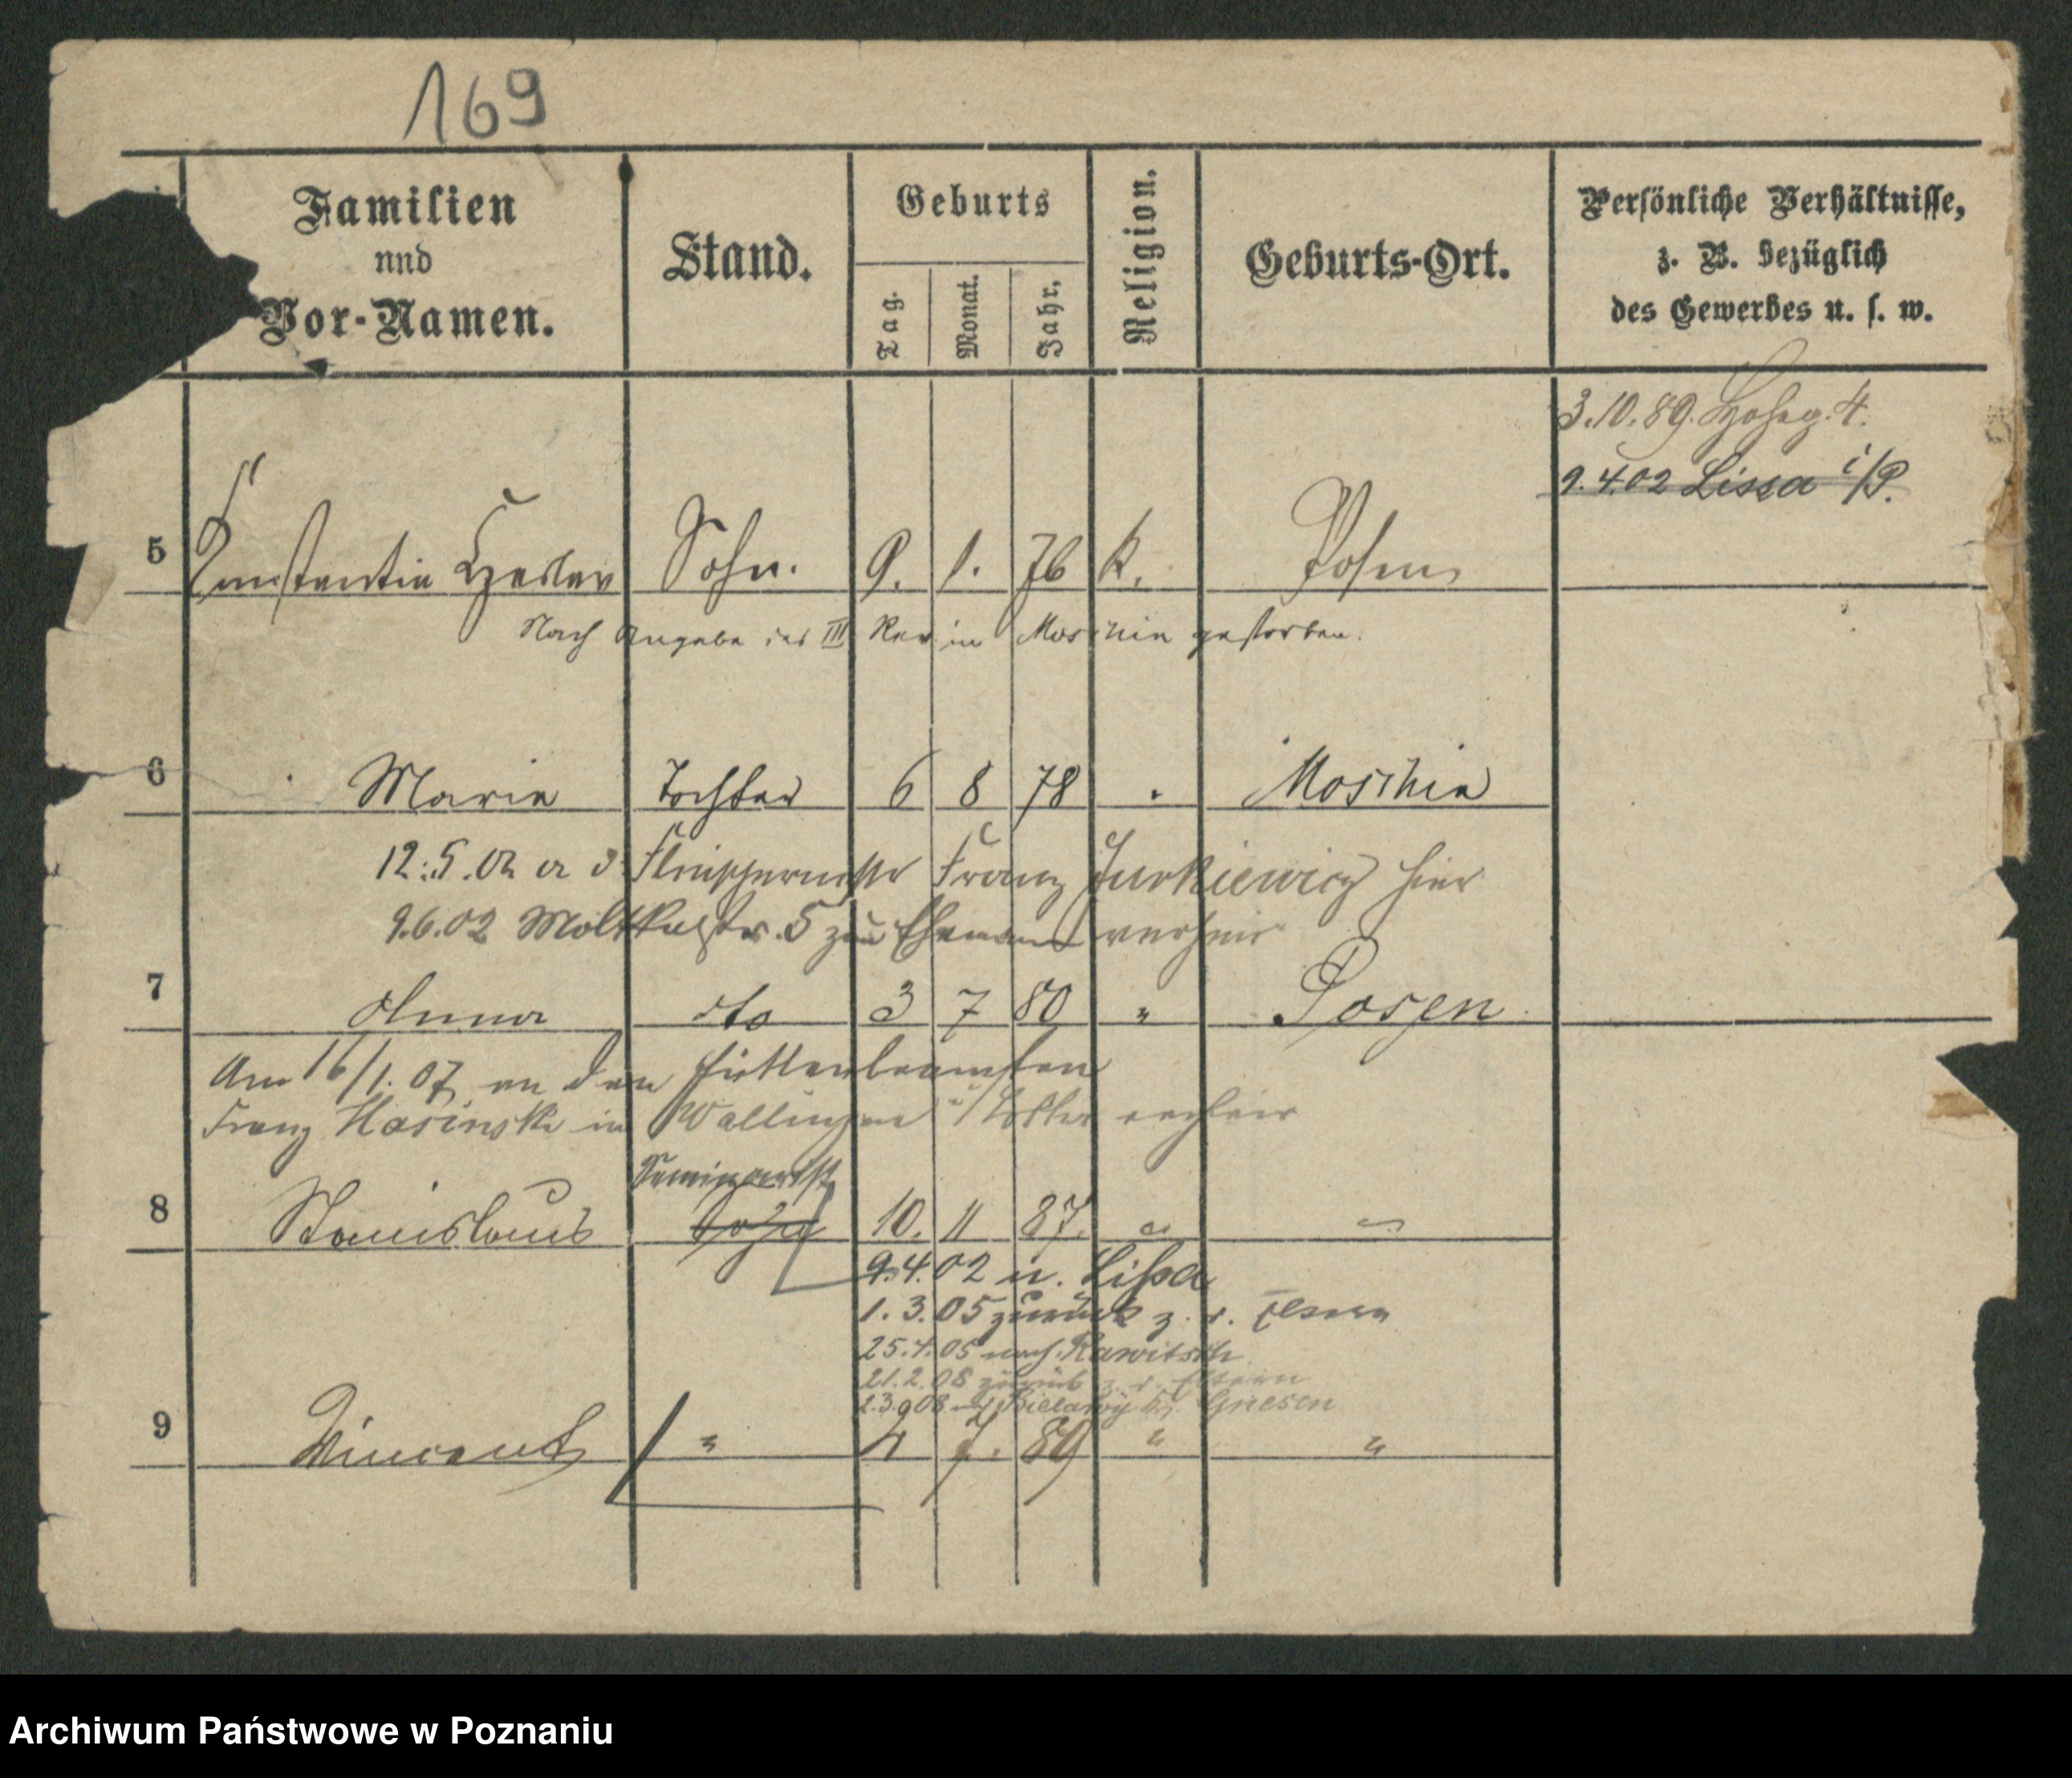 169
Familien
und
Vor-Namen.
Stand.
Geburts
Tag.
Monat.
Jahr.
Religion.
Geburts-Ort.
Persönliche Verhältnisse,
z. B. bezüglich
des Gewerbes u. s. w.
3.10.89. 4.
9.4.02 Lissa i/P.
5 Sohn. 9. 1. 76 k. Posen
Nach Angabe des III Rev in Moschin gestorben.
6 Marie Tochter 6 8 78 Moschin
12.5.02 a d Fleischermstr Franz Jurkiewicz hier
9.6.02 Moltkestr. 5 zum Ehemann verheir
7 Anna dto 3 7 80 " Posen
Am 16/1.07 an den Hüttenbeamten
Franz Hasinski in verheir
Seminarist
8 Stanislaus Sohn 10. 11 87. " "
9.4.02 n. Lissa
1.3.05 zurück z. d. Eltern
25.4.05 nach Rawitsch
21.2.08 zurück z. d. Eltern
2.3.908 Bielawy Gnesen
9 Vincent " 4 7. 89 " "
Archiwum Państwowe w Poznaniu